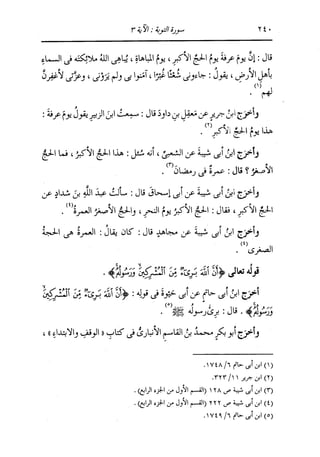 ٢٤٠ سورة التوبة : الآية ٣
قال : إنَّ يومَ عرفةَ يومُ الحجِّ الأكبرِ ، يومُ المباهاةِ ، يُباهى اللهُ ملائكتَه فى السماءِ
بأهلِ الأرضِ ، يقولُ : جاءونى شُعْثًا غُبْرًا ، آمنوا بى ولم يَرَوْنى ، وعزَّتى لأغفِرنَّ
لهم (١) .
وأخرَج ابنُ جريرٍ عن معقلِ بنِ داودَ قال : سمِعتُ ابنَ الزبيرِ يقولُ يومَ عرفةَ :
هذا يومُ الحجِّ الأكبرِ (٢) .
وأخرَج ابنُ أبى شيبةَ عن الشعبىِّ ، أنه سُئل : هذا الحجُّ الأكبرُ ، فما الحجُّ
الأصغرُ ؟ قال : عمرةٌ فى رمضانَ (٣) .
وأخرَج ابنُ أبى شيبةَ عن أبى إسحاقَ قال : سألتُ عبدَ اللَّهِ بنَ شدادٍ عن
الحجِّ الأكبرِ ، فقال : الحجُّ الأكبرُ يومُ النحرِ ، والحجُّ الأصغرُ العمرةُ (٤) .
وأخرَج ابنُ أبى شيبةَ عن مجاهدٍ قال : كان يقالُ : العمرةُ هى الحجةُ
الصغرى (٤) .
قولُه تعالى : ﴿أَنَّ ٱللَّهَ بَرِىٓءٌ مِّنَ ٱلْمُشْرِكِينَ وَرَسُولُهُۥ﴾ .
أخرَج ابنُ أبى حاتمٍ عن أبى حَيْوةَ فى قولِه : ﴿أَنَّ ٱللَّهَ بَرِىٓءٌ مِّنَ ٱلْمُشْرِكِينَ
وَرَسُولُهُۥ﴾ . قال : برِئ رسولُه ﷺ (٥) .
وأخرَج أبو بكرٍ محمدُ بنُ القاسمِ الأنبارىُّ فى كتابِ « الوقفِ والابتداءِ » ،
(١) ابن أبى حاتم ٦/ ١٧٤٨.
(٢) ابن جرير ١١/ ٣٢٣.
(٣) ابن أبى شيبة ص ١٢٨ (القسم الأول من الجزء الرابع) .
(٤) ابن أبى شيبة ص ٢٢٢ (القسم الأول من الجزء الرابع) .
(٥) ابن أبى حاتم ٦/ ١٧٤٩.